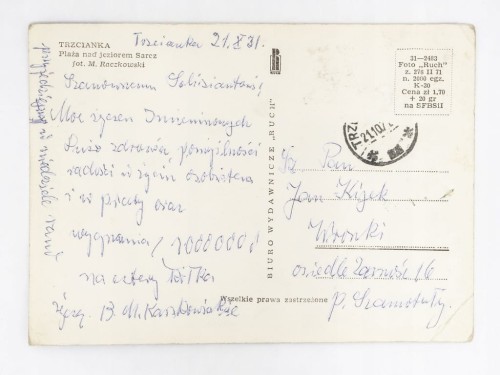 TRZCIANKA
Plaża nad jeziorem Sarcz
fot. M. Raczkowski
Trzcianka 21.X 71.
Szanownemu Solenizantowi
Moc życzeń Imieninowych
Dużo zdrowia, pomyślności
radości w życiu osobistem
i w pracy oraz
wygrania / 1000000 zł
na cztery
Życzą B. M.
przyjedziemy w niedzielę rano
BIURO WYDAWNICZE „RUCH"
Wszelkie prawa zastrzeżone
31—2483
Foto „Ruch"
n. 2000 egz.
K-20
Cena zł 1,70
+ 20 gr
na SFBSiI
TRZCI
21.10.7
Sz. Pan
Jan
Wronki
osiedle 16
p. Szamotuły.